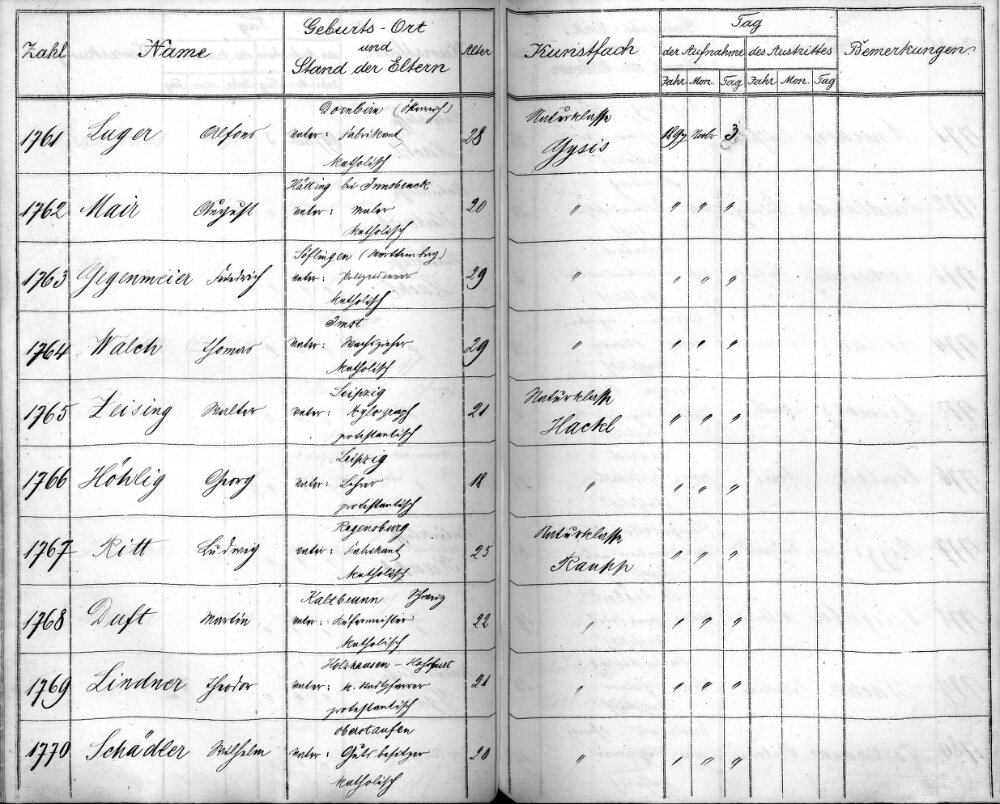 Zahl Name Geburts-Ort und Stand der Eltern Alter Kunstfach Tag der Aufnahme des Austrittes Bemerkungen
Jahr Mon. Tag Jahr Mon. Tag
Dornbirn (Österreich) Naturklasse
1761 Luger Alfons Vater: Fabrikant 28 Gysis 1897 Novbr 3
katholisch
Hötting bei Innsbruck
1762 Mair August Vater: Maler 20 " " " "
katholisch
Söflingen (Württemberg)
1763 Gegenmeier Friedrich Vater: 29 " " " "
katholisch
Imst
1764 Walch Thomas Vater: Wachszieher 29 " " " "
katholisch
Leipzig Naturklasse
1765 Zeising Walter Vater: Xylograph 21 Hackl " " "
protestantisch
Leipzig
1766 Höhlig Georg Vater: Lehrer 18 " " " "
protestantisch
Regensburg Naturklasse
1767 Ritt Ludwig Vater: Fabrikant 25 Raupp " " "
katholisch
Kaltbrunn Schweiz
1768 Duft Martin Vater: Küfermeister 22 " " " "
katholisch
Holzhausen -
1769 Lindner Theodor Vater: 21 " " " "
protestantisch
Oberstaufen
1770 Schädler Wilhelm Vater: Gutsbesitzer 20 " " " "
katholisch